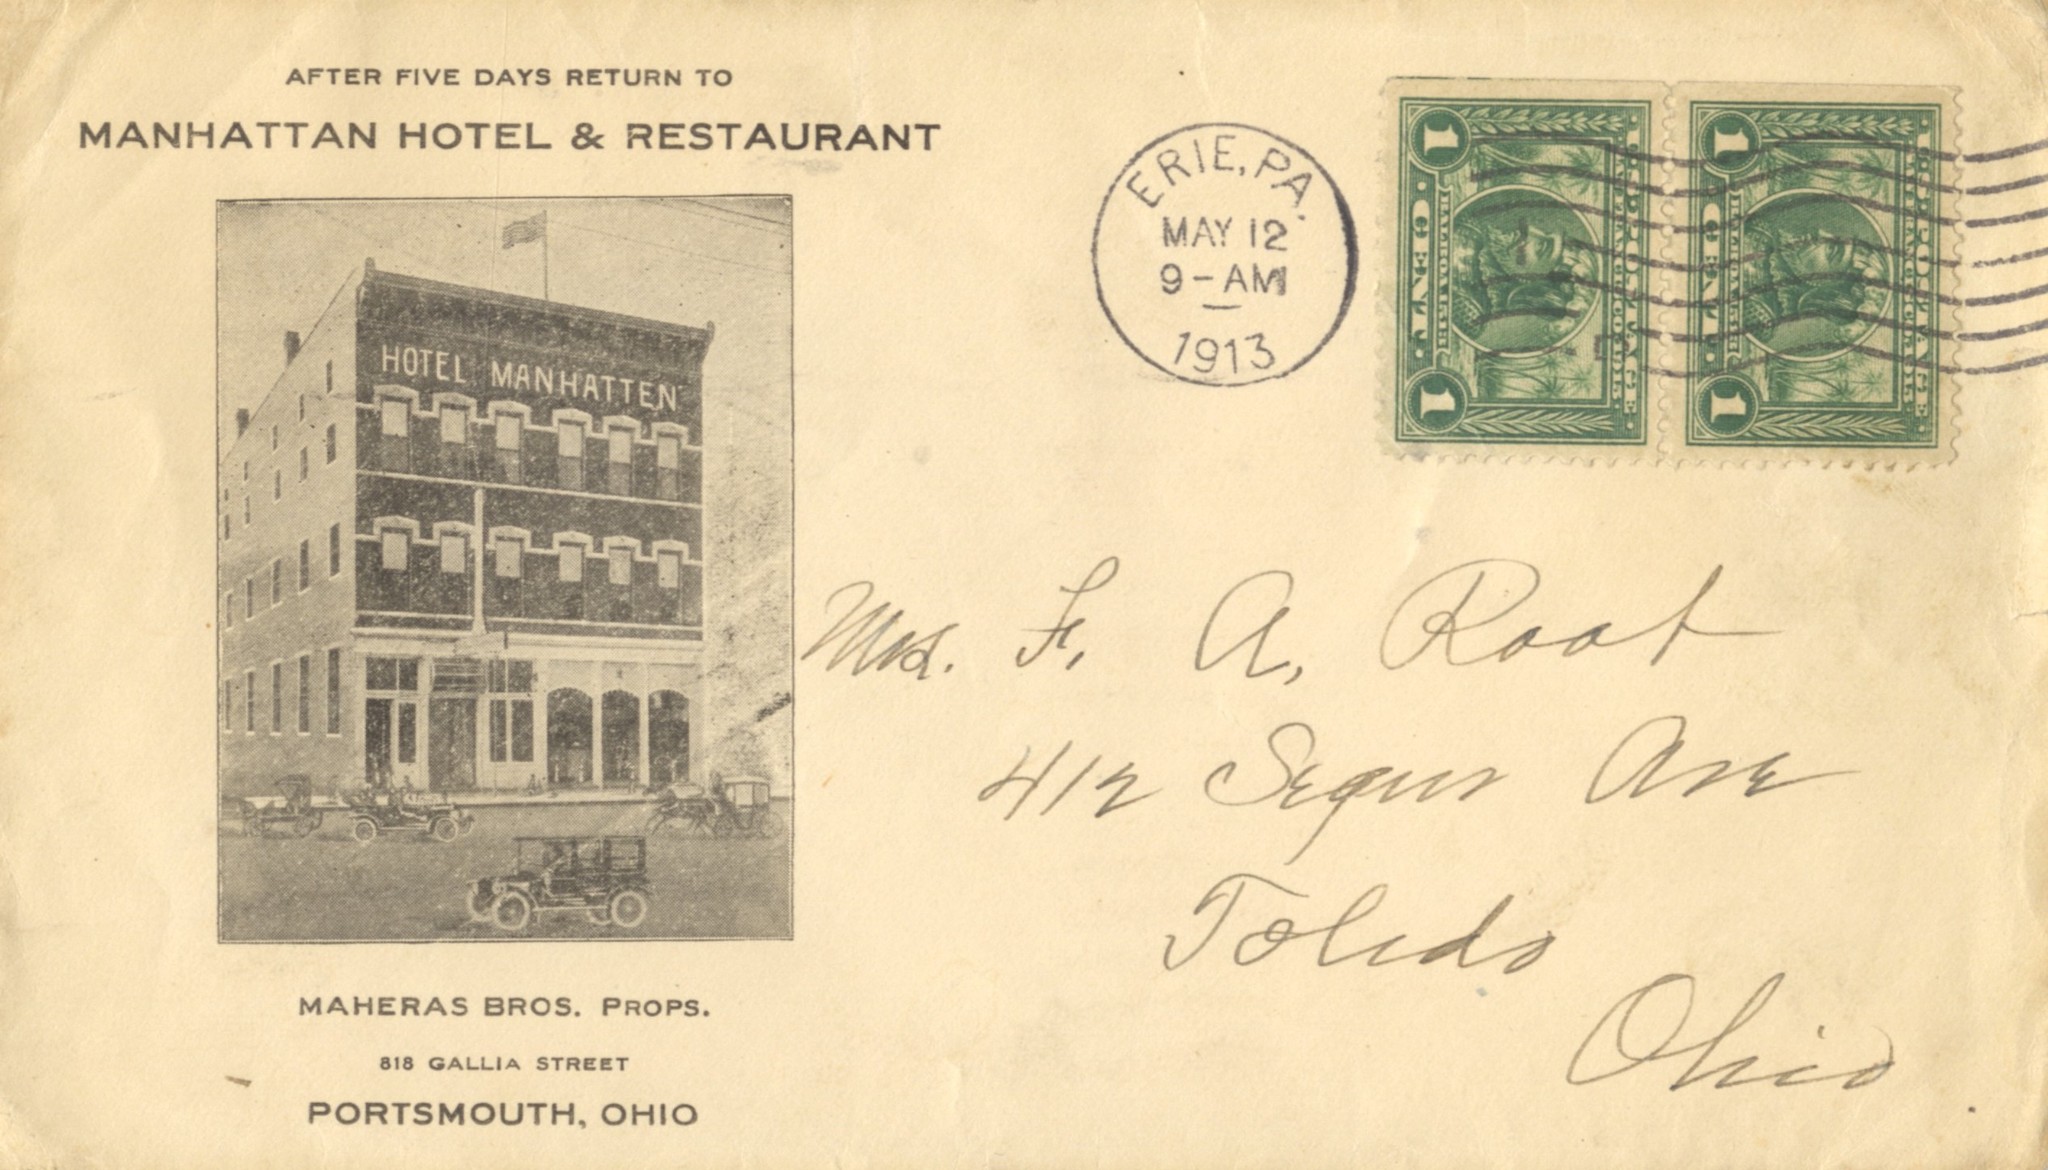 AFTER FIVE DAYS RETURN TO
MANHATTAN HOTEL & RESTAURANT
HOTEL MANHATTEN
MAHERAS BROS. PROPS.
818 GALLIA STREET
PORTSMOUTH, OHIO
ERIE, PA.
MAY 12
9-AM
1913
1 CENT 1
1 CENT 1
Mrs. F. A. Root
412 Segur Ave
Toledo
Ohio